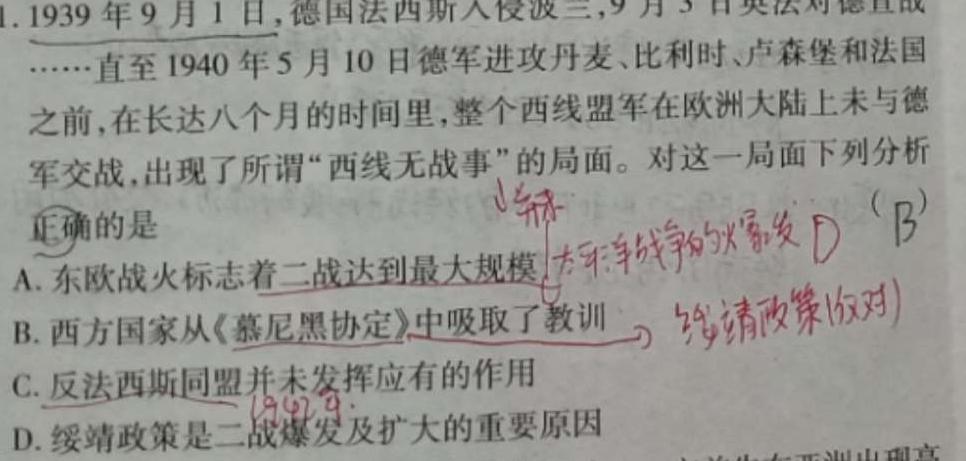 1. 1939 年 9 月 1 日,德国法西斯入侵波兰,9 月 3 日英法对德宣战
……直至 1940 年 5 月 10 日德军进攻丹麦、比利时、卢森堡和法国
之前,在长达八个月的时间里,整个西线盟军在欧洲大陆上未与德
军交战,出现了所谓“西线无战事”的局面。对这一局面下列分析
正确的是
(B)
D
A. 东欧战火标志着二战达到最大规模
太平洋战争的火爆发
B. 西方国家从《慕尼黑协定》中吸取了教训
绥靖政策(反对)
C. 反法西斯同盟并未发挥应有的作用
1942年.
D. 绥靖政策是二战爆发及扩大的重要原因